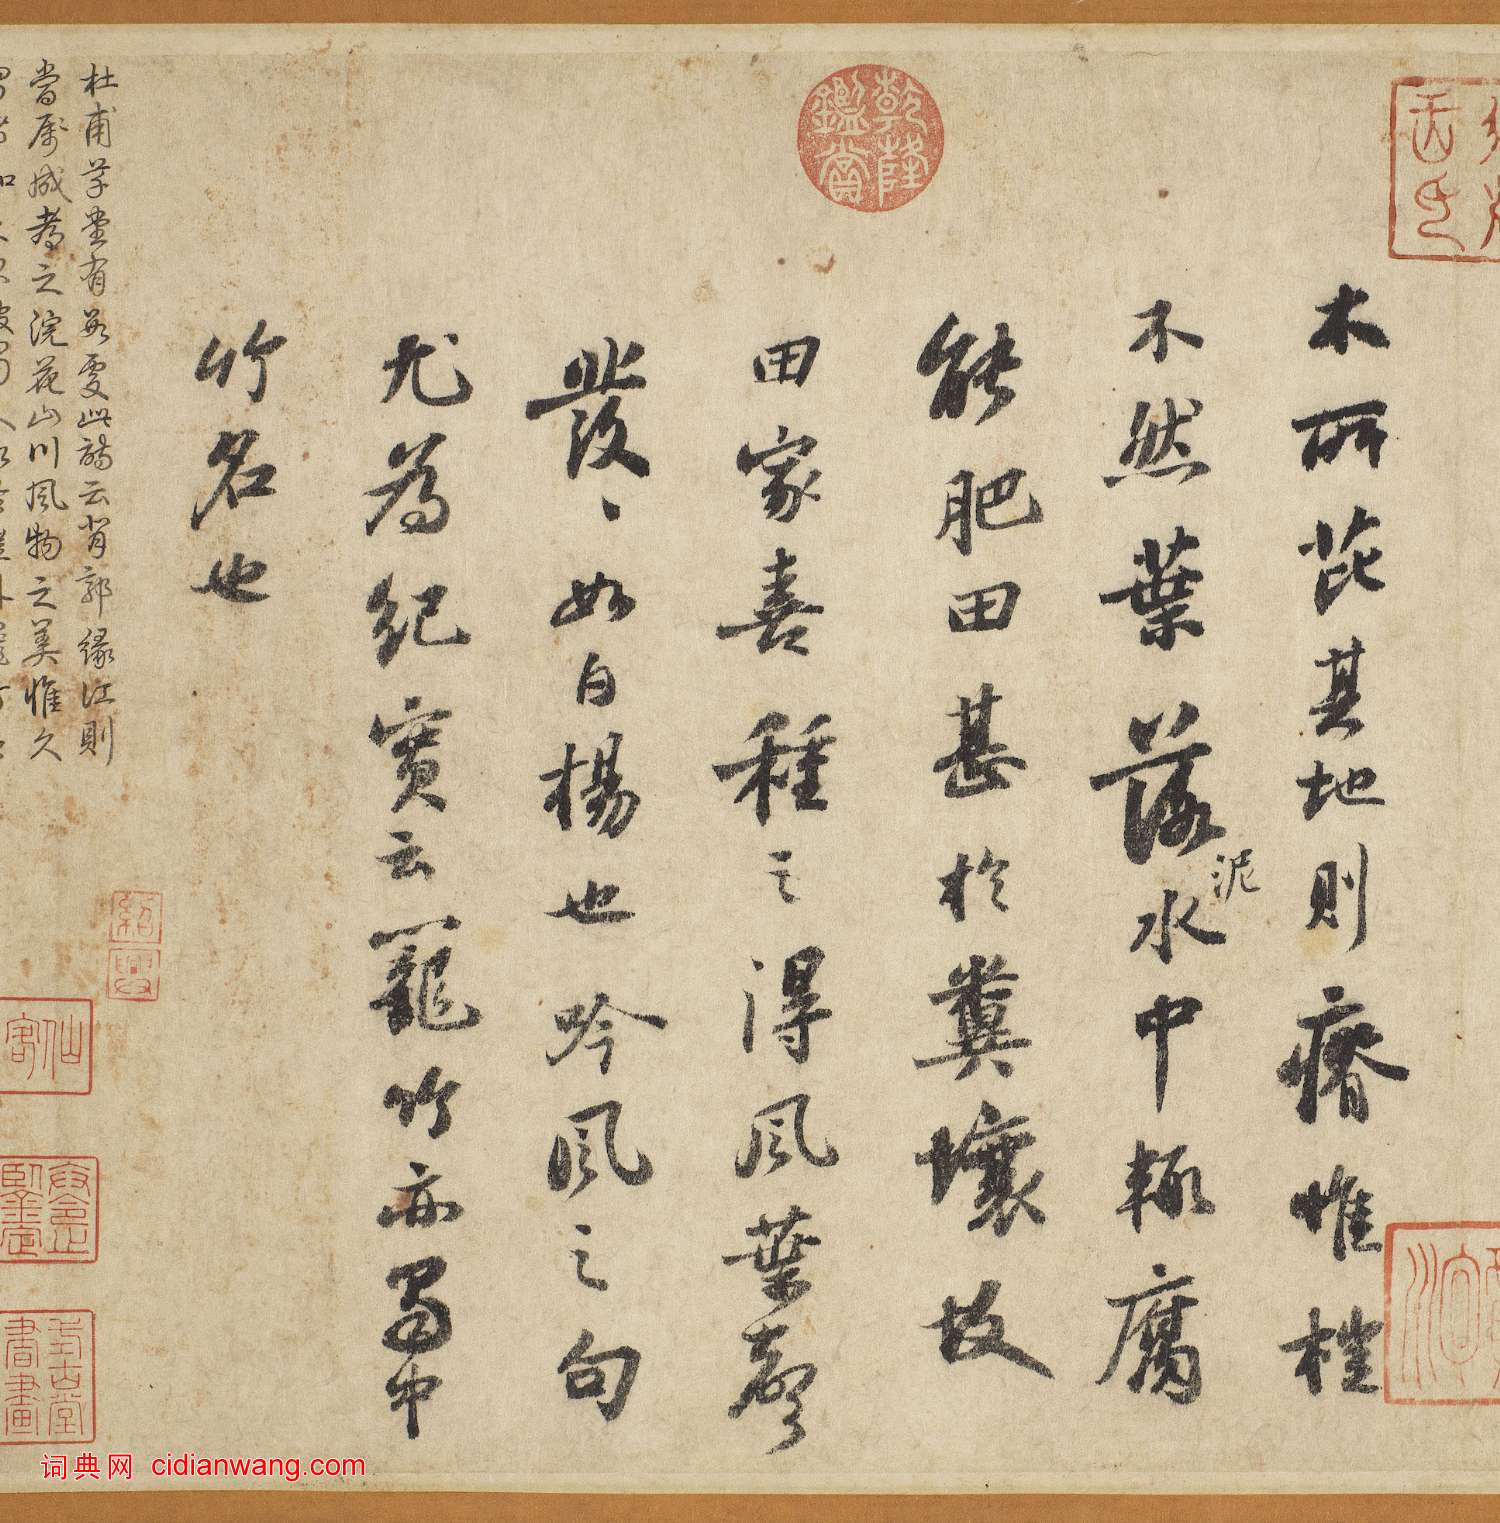 木所芘其地則瘠惟榿
不然葉落泥水中輒腐
能肥田甚於糞壤故
田家喜種之得風葉聲
發〻如白楊也吟風之句
尤為紀實云籠竹亦蜀中
竹名也
杜甫草堂有數處此詩云背郭緣江則
當屬成都之浣花山川風物之美惟久
乾隆鑑賞
紹興
仙客
蕉林鑒定
書畫
词典网 cidianwang.com